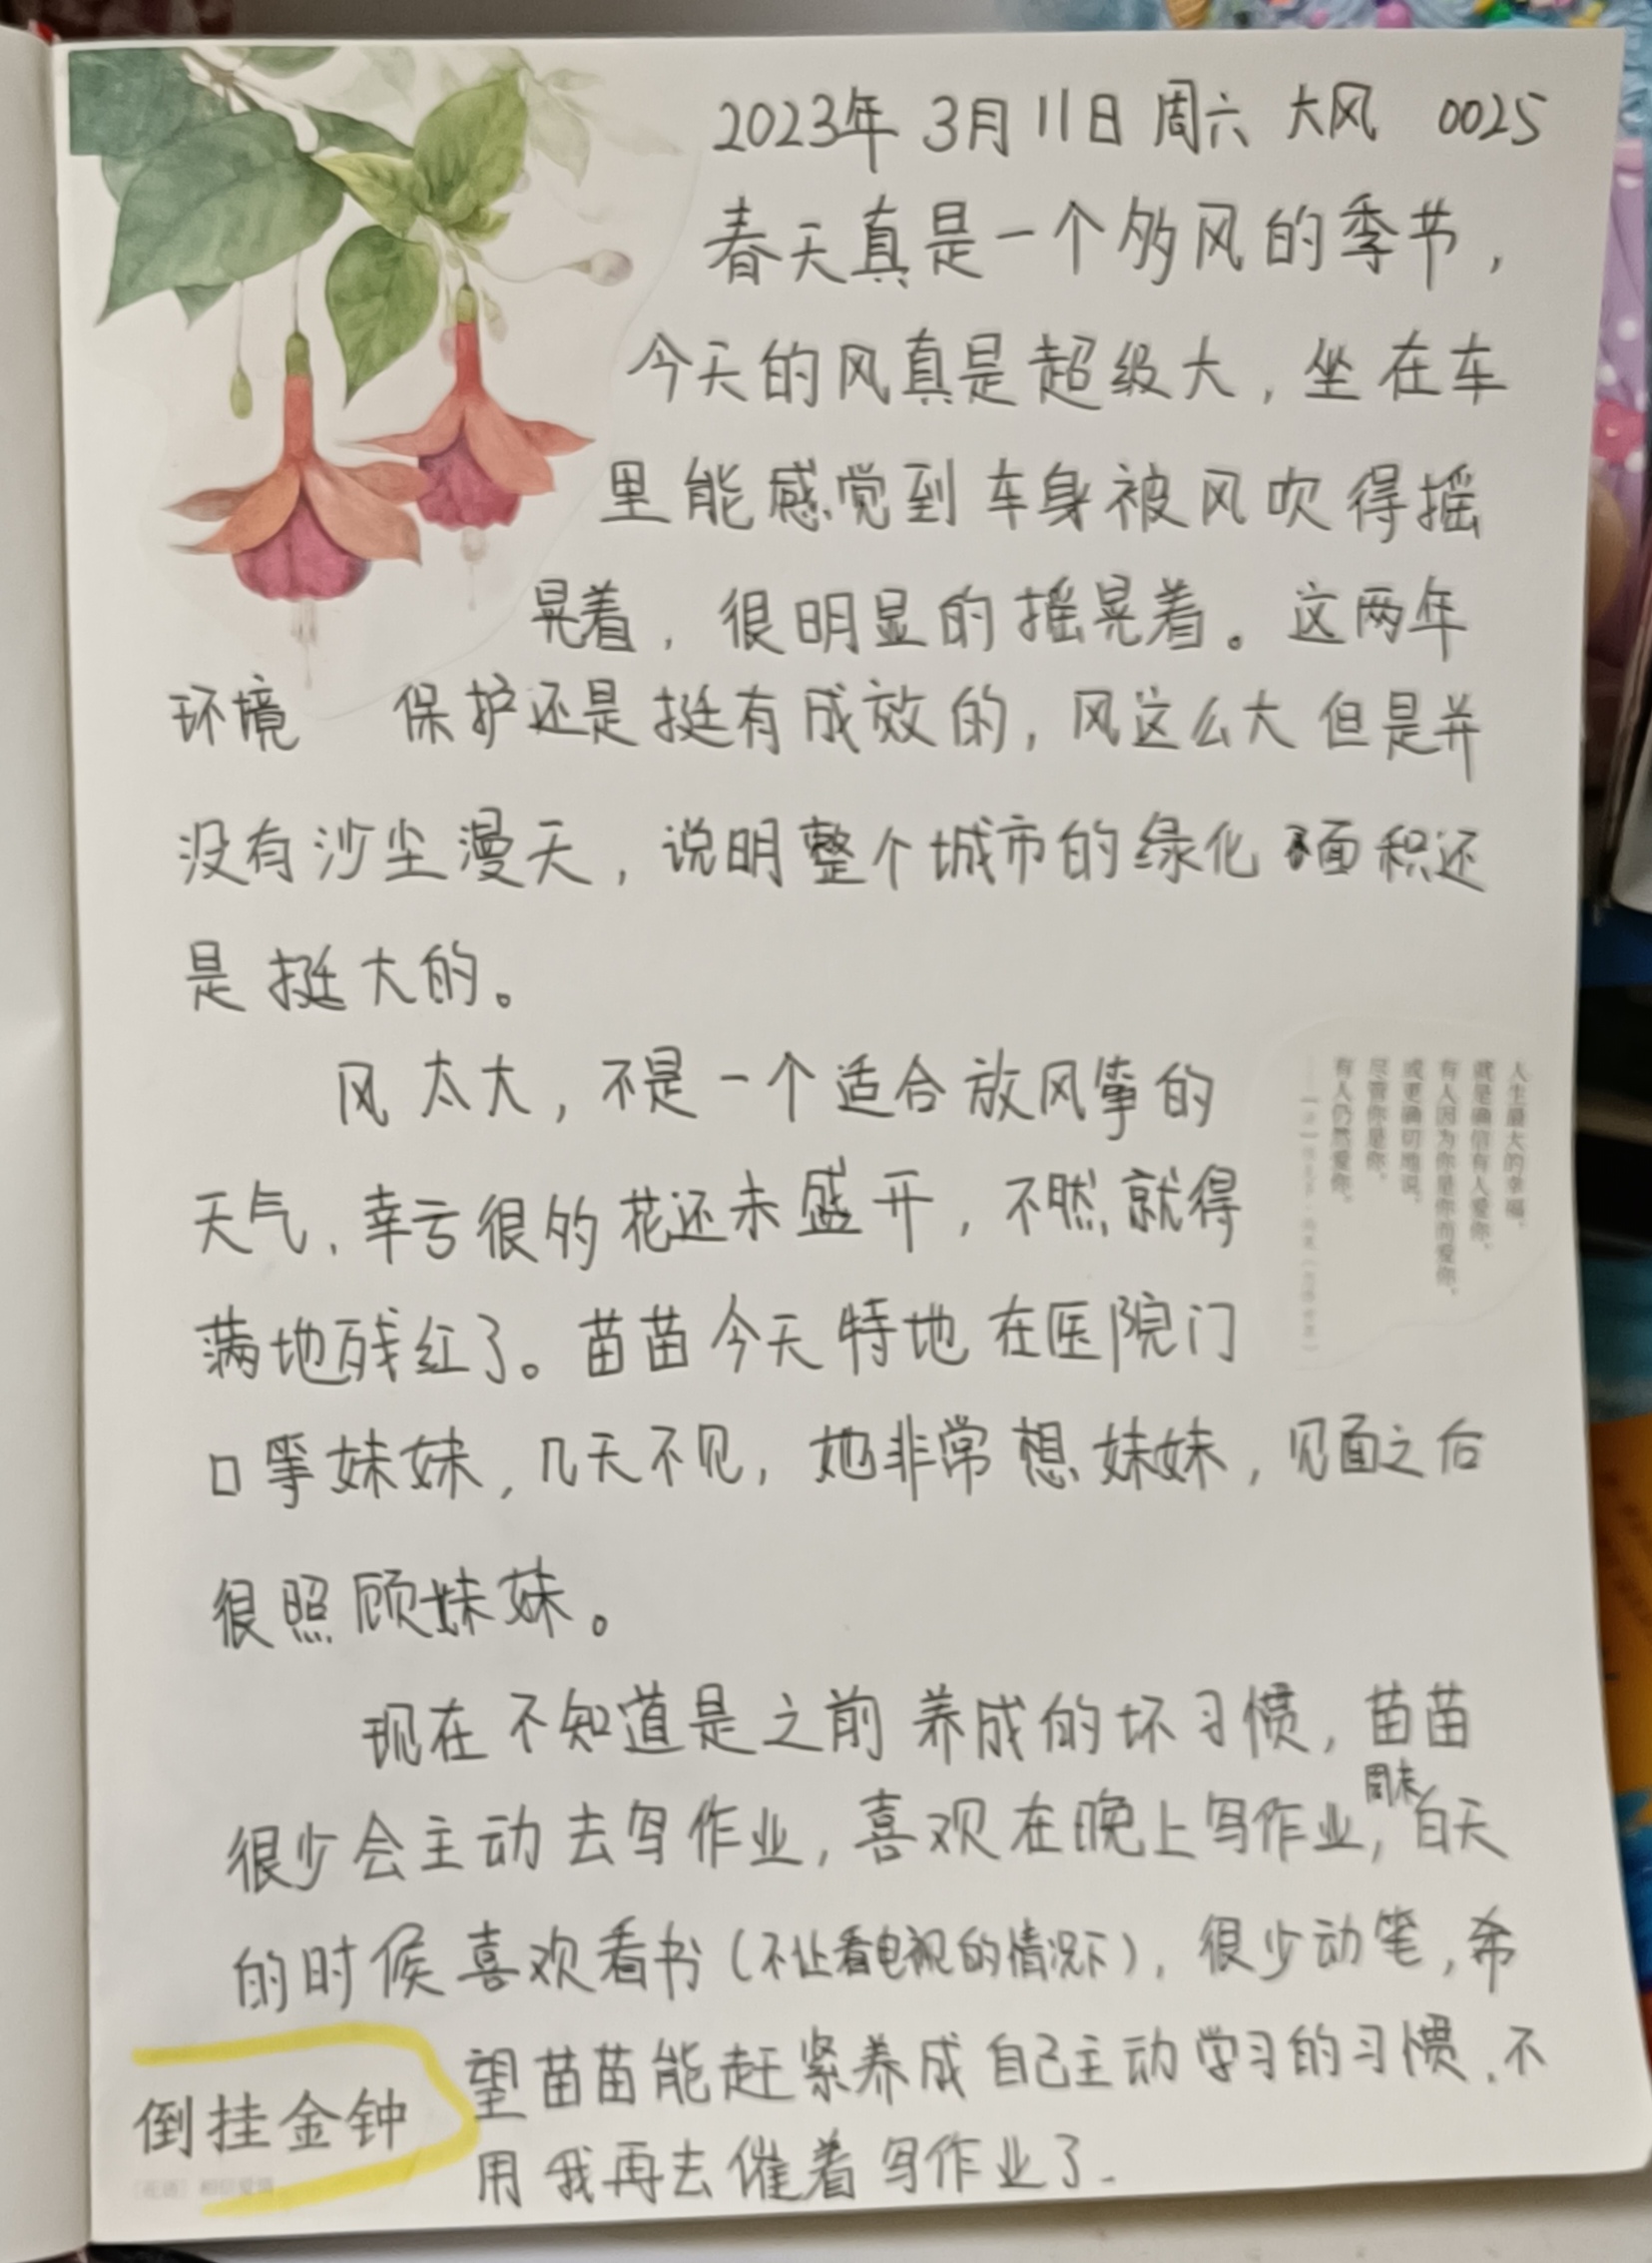 2023年 3月11日 周六 大风 0025
春天真是一个多风的季节，
今天的风真是超级大，坐在车
里能感觉到车身被风吹得摇
晃着，很明显的摇晃着。这两年
环境 保护还是挺有成效的，风这么大但是并
没有沙尘漫天，说明整个城市的绿化面积还
是挺大的。
风太大，不是一个适合放风筝的
天气，幸亏很多花还未盛开，不然就得
满地残红了。苗苗今天特地在医院门
口等妹妹，几天不见，她非常想妹妹，见面之后
很照顾妹妹。
现在不知道是之前养成的坏习惯，苗苗
很少会主动去写作业，喜欢在晚上写作业，周末白天
的时候喜欢看书（不让看电视的情况下），很少动笔，希
望苗苗能赶紧养成自己主动学习的习惯，不
用我再去催着写作业了。
人生最大的幸福，
就是确信有人爱你，
有人因为你是你而爱你，
或更确切地说，
尽管你是你，
有人仍然爱你。
倒挂金钟
［花语］相信爱情